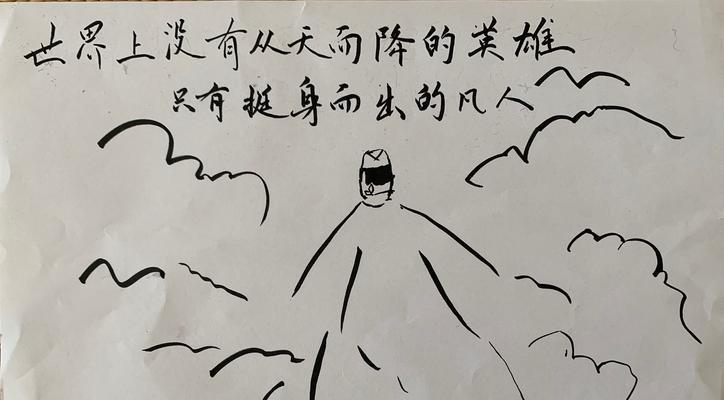 世界上没有从天而降的英雄
只有挺身而出的凡人